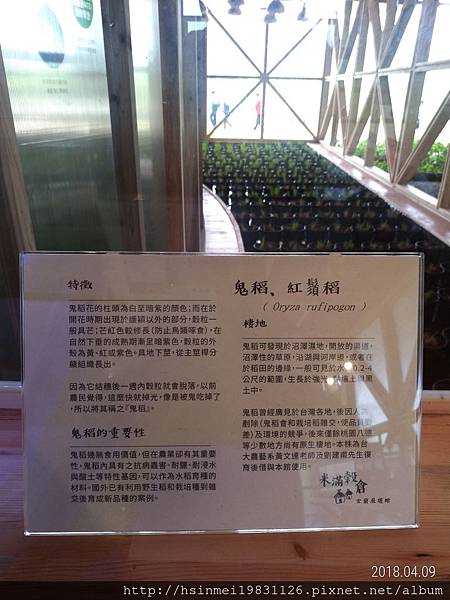 特徵
鬼稻花的柱頭為白至暗紫的顏色；而在於
開花時期出現於護穎以外的部分，穀粒一
般具芒；芒紅色較修長(防止鳥類啄食)，在
自然下垂的成熟期漸呈暗紫色，穀粒的外
殼為黃、紅或紫色。具地下莖，從主莖稈分
蘗組織長出。
因為它結穗後一週內穀粒就會脫落，以前
農民覺得，這麼快就掉光，像是被鬼吃掉了
，所以將其稱之『鬼稻』。
鬼稻的重要性
鬼稻幾無食用價值，但在農藥卻有其重要
性，鬼稻內具有之抗病蟲害、耐鹽、耐浸水
與酸土等特性基因，可以作為水稻育種的
材料。國外已有利用野生稻和栽培種到雜
交後育成新品種的案例。
鬼稻、紅鬚稻
( Oryza rufipogon )
棲地
鬼稻可發現於沼澤濕地，開放的渠道，
沼澤性的草原，沿湖與河岸邊，或者在
於稻田的邊緣，一般可見於水 0.2-4
公尺的範圍，生長於強光
土中。
鬼稻曾經廣見於台灣各地，後因人
剷除(鬼稻會和栽培稻雜交，使品質
差)及環境的競爭，後來僅餘桃園八德
等少數地方尚有原生棲地。本株為台
大農藝系黃文達老師及劉建甫先生復
育後借與本館使用。
米滿穀倉
宏蘭展選館
2018.04.09
http://hsinmei19831126.pixnet.net/album